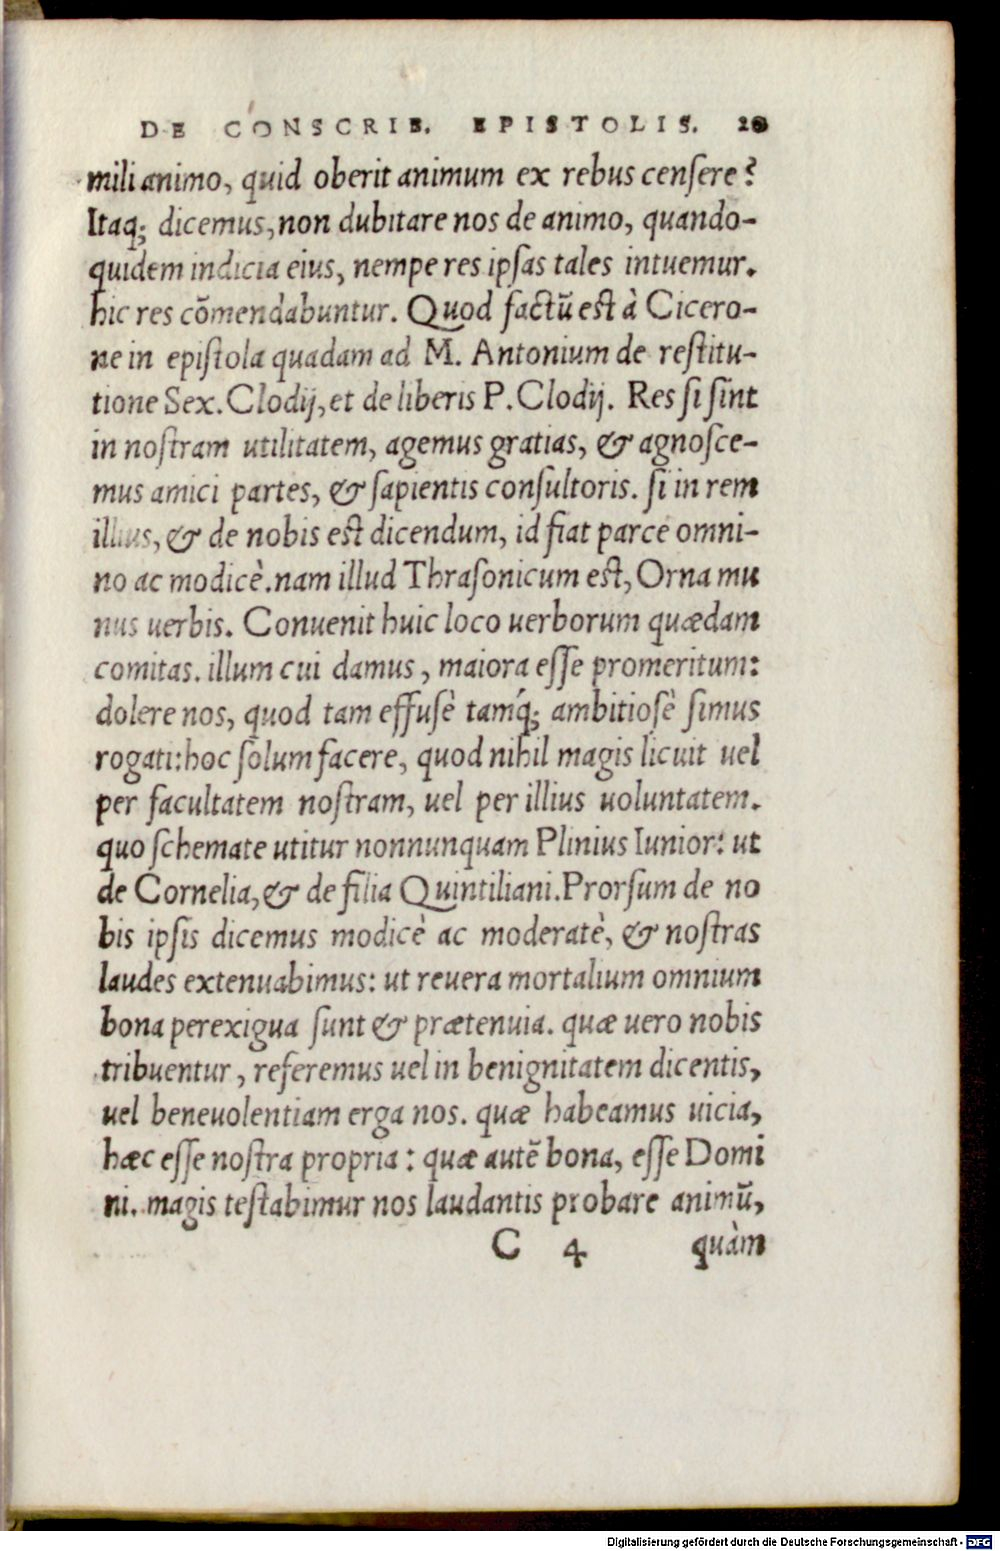 DE CONSCRIB. EPISTOLIS. 20
mili animo, quid oberit animum ex rebus censere?
Itaq; dicemus, non dubitare nos de animo, quando-
quidem indicia eius, nempe res ipsas tales intuemur.
hic res cōmendabuntur. Quod factū est à Cicero-
ne in epistola quadam ad M. Antonium de restitu-
tione Sex. Clodij, et de liberis P. Clodij. Res si sint
in nostram utilitatem, agemus gratias, & agnosce-
mus amici partes, & sapientis consultoris. si in rem
illius, & de nobis est dicendum, id fiat parce omni-
no ac modicè. nam illud Thrasonicum est, Orna mu
nus uerbis. Conuenit huic loco uerborum quædam
comitas. illum cui damus, maiora esse promeritum:
dolere nos, quod tam effusè tamq́; ambitiosè simus
rogati: hoc solum facere, quod nihil magis licuit uel
per facultatem nostram, uel per illius uoluntatem.
quo schemate utitur nonnunquam Plinius Iunior: ut
de Cornelia, & de filia Quintiliani. Prorsum de no
bis ipsis dicemus modicè ac moderatè, & nostras
laudes extenuabimus: ut reuera mortalium omnium
bona perexigua sunt & prætenuia. quæ uero nobis
tribuentur, referemus uel in benignitatem dicentis,
uel beneuolentiam erga nos. quæ habeamus uicia,
hæc esse nostra propria: quæ autē bona, esse Domi
ni. magis testabimur nos laudantis probare animū,
C 4 quàm
Digitalisierung gefördert durch die Deutsche Forschungsgemeinschaft - DFG